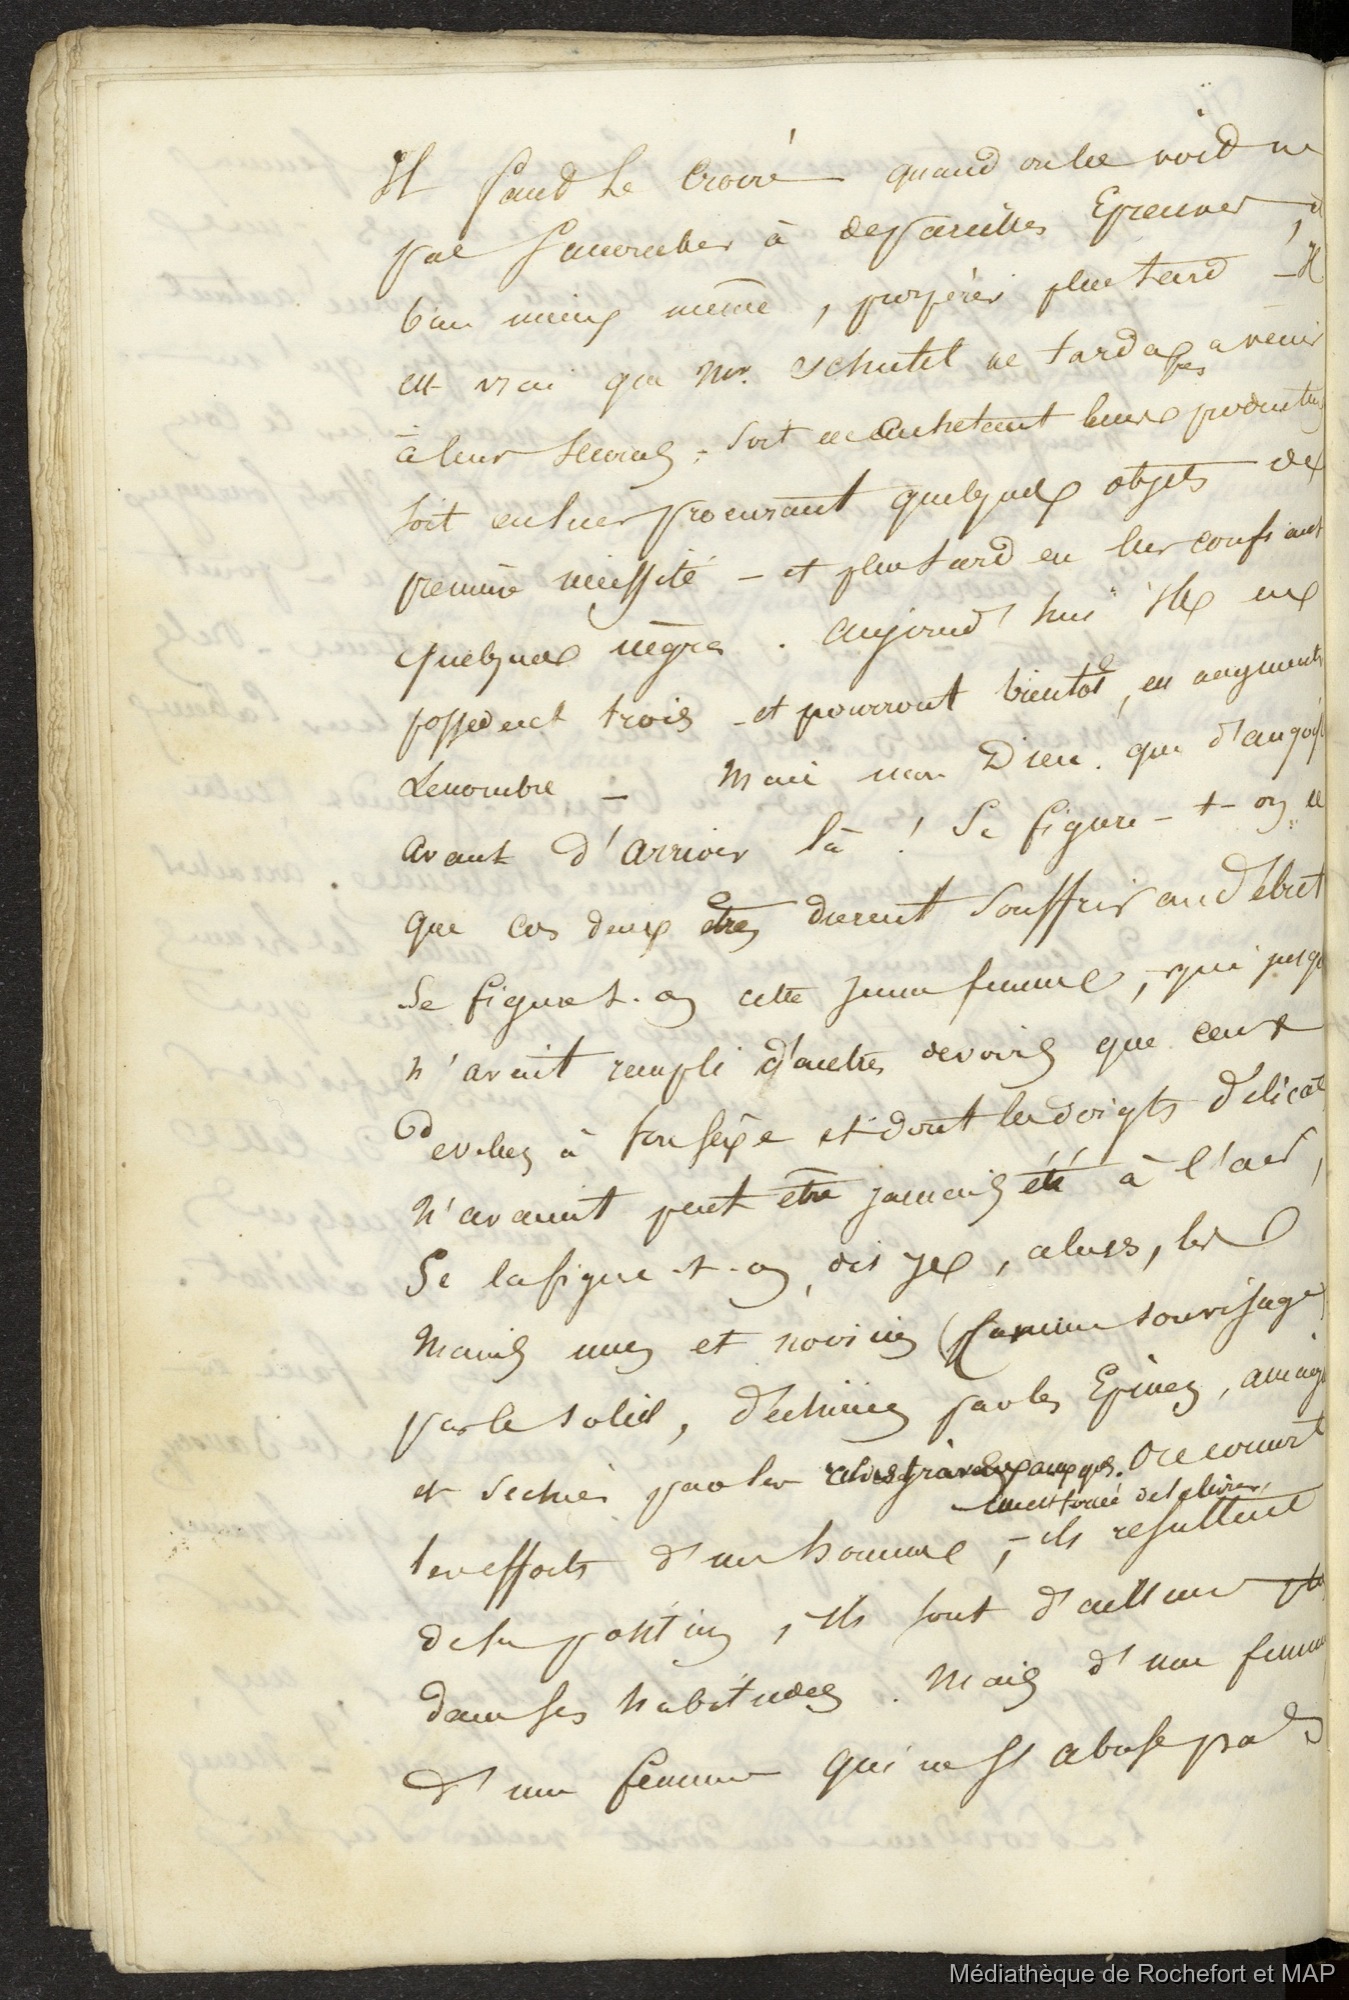 Il faut le croire quand on les voit ne
pas succomber à de pareilles Epreuves, et
bien mieux même, prospérer plus tard - Il
est vrai que Mr. Schutel ne tarda pas a venir
à leur secours, soit en achetant leurs productions
soit en leur procurant quelques objets de
première nécessité - et plus tard en leur confiant
quelques nègres. aujourd'hui ils en
possedent trois - et pourront bientôt, en augmenter
le nombre - Mais mon Dieu. que d'angoisses
avant d'arriver là ! Se figure-t-on ce
que ces deux êtres durent souffrir au début
se figure t-on cette jeune femme, - qui jusque
n'avait rempli d'autres devoirs que ceux
Devolus à son sexe et dont les doigts délicats
n'avaient peut être jamais été à l'air,
Se la figure-t-on, dis je, alors, les
Mains nues et noircies (comme son visage)
par le soleil, déchirées par les Epines, amaigries
et sechées par les rudes travaux auxquels
elle est forcée de se livrer,
On connait
les efforts d'un homme, - ils resultent
de sa position, ils sont d'ailleurs plus
dans ses habitudes. Mais d'une femme
d'une femme qui ne s'abuse pas
Médiathèque de Rochefort et MAP